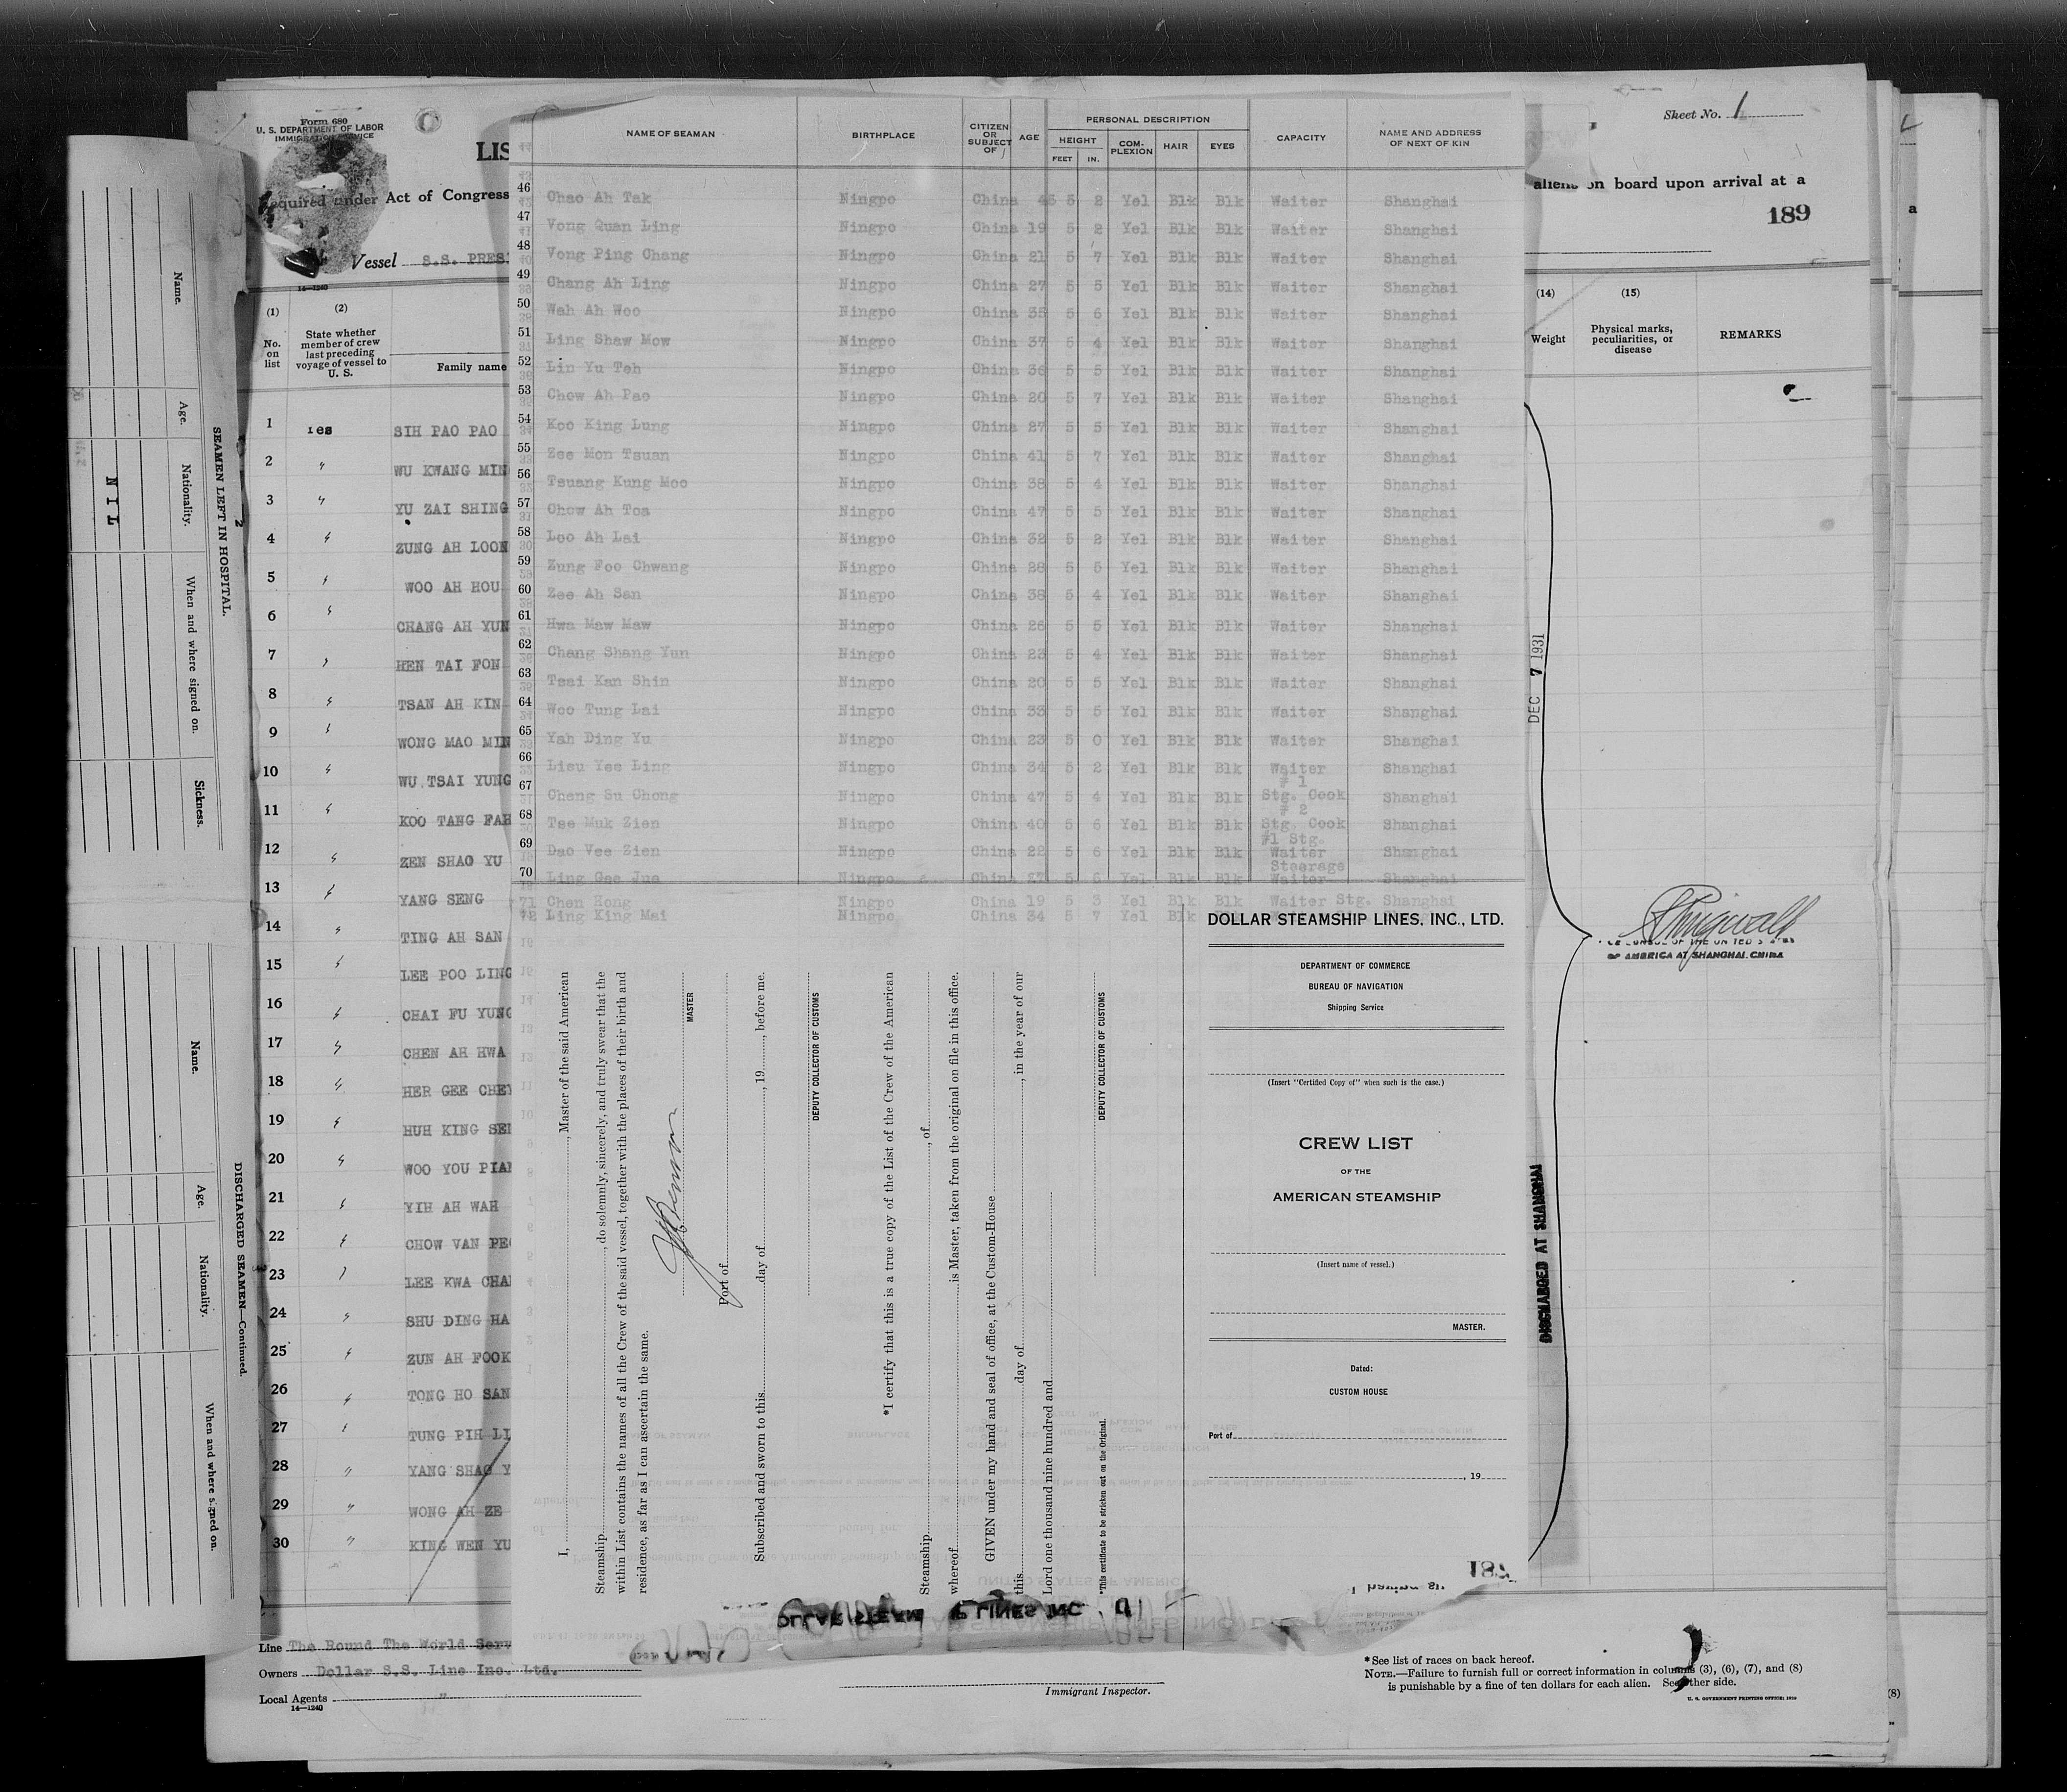 Form 680
U. S. DEPARTMENT OF LABOR
IMMIGRATION SERVICE
LIS
required under Act of Congress
Vessel S.S. PRES
14—1240
Sheet No. 1
aliens on board upon arrival at a
189
a
(1)
No. on list
(2)
State whether member of crew last preceding voyage of vessel to U. S.
Family name
(14)
Weight
(15)
Physical marks, peculiarities, or disease
REMARKS
1 Yes SIH PAO PAO
2 " WU KWANG MIN
3 " YU ZAI SHING
4 " ZUNG AH LOON
5 " WOO AH HOU
6 " CHANG AH YUN
7 " HEN TAI FON
8 " TSAN AH KIN
9 " WONG MAO MIN
10 " WU TSAI YUNG
11 " KOO TANG FAH
12 " ZEN SHAO YU
13 " YANG SENG
14 " TING AH SAN
15 " LEE POO LING
16 " CHAI FU YUNG
17 " CHEN AH HWA
18 " HER GEE CHEY
19 " HUH KING SE
20 " WOO YOU PIA
21 " YIH AH WAH
22 " CHOW VAN PE
23 " LEE KWA CHA
24 " SHU DING HA
25 " ZUN AH FOOK
26 " TONG HO SAN
27 " TUNG PIH LI
28 " YANG SHAO Y
29 " WONG AH ZE
30 " KING WEN YU
Line The Round The World Serv
Owners Dollar S.S. Line Inc. Ltd.
Local Agents "
14—1240
Immigrant Inspector.
* See list of races on back hereof.
NOTE.—Failure to furnish full or correct information in columns (3), (6), (7), and (8)
is punishable by a fine of ten dollars for each alien. See other side.
U. S. GOVERNMENT PRINTING OFFICE:
(8)
SEAMEN LEFT IN HOSPITAL.
Name.
Age.
Nationality.
When and where signed on.
Sickness.
NIL
DISCHARGED SEAMEN—Continued.
Name.
Age.
Nationality.
When and where signed on.
NAME OF SEAMAN
BIRTHPLACE
CITIZEN OR SUBJECT OF
AGE
PERSONAL DESCRIPTION
HEIGHT
FEET
IN.
COMPLEXION
HAIR
EYES
CAPACITY
NAME AND ADDRESS OF NEXT OF KIN
46 Chao Ah Tak Ningpo China 45 5 2 Yel Blk Blk Waiter Shanghai
47 Vong Quan Ling Ningpo China 19 5 2 Yel Blk Blk Waiter Shanghai
48 Vong Ping Chang Ningpo China 21 5 7 Yel Blk Blk Waiter Shanghai
49 Chang Ah Ling Ningpo China 27 5 5 Yel Blk Blk Waiter Shanghai
50 Wah Ah Woo Ningpo China 35 5 6 Yel Blk Blk Waiter Shanghai
51 Ling Shaw Mow Ningpo China 37 5 4 Yel Blk Blk Waiter Shanghai
52 Lin Yu Teh Ningpo China 36 5 5 Yel Blk Blk Waiter Shanghai
53 Chow Ah Pao Ningpo China 20 5 7 Yel Blk Blk Waiter Shanghai
54 Koo King Lung Ningpo China 27 5 5 Yel Blk Blk Waiter Shanghai
55 Zee Mon Tsuan Ningpo China 41 5 7 Yel Blk Blk Waiter Shanghai
56 Tsuang Kung Moo Ningpo China 38 5 4 Yel Blk Blk Waiter Shanghai
57 Chow Ah Toa Ningpo China 47 5 5 Yel Blk Blk Waiter Shanghai
58 Loo Ah Lai Ningpo China 32 5 2 Yel Blk Blk Waiter Shanghai
59 Zung Foo Chwang Ningpo China 28 5 5 Yel Blk Blk Waiter Shanghai
60 Zee Ah San Ningpo China 38 5 4 Yel Blk Blk Waiter Shanghai
61 Hwa Maw Maw Ningpo China 26 5 5 Yel Blk Blk Waiter Shanghai
62 Chang Shang Yun Ningpo China 23 5 4 Yel Blk Blk Waiter Shanghai
63 Tsai Kan Shin Ningpo China 20 5 5 Yel Blk Blk Waiter Shanghai
64 Woo Tung Lai Ningpo China 33 5 5 Yel Blk Blk Waiter Shanghai
65 Yah Ding Yu Ningpo China 23 5 0 Yel Blk Blk Waiter Shanghai
66 Liau Yee Ling Ningpo China 34 5 2 Yel Blk Blk Waiter Shanghai
67 Cheng Su Chong Ningpo China 47 5 4 Yel Blk Blk # 1 Stg. Cook Shanghai
68 Tse Muk Zien Ningpo China 40 5 6 Yel Blk Blk # 2 Stg. Cook Shanghai
69 Dao Vee Zien Ningpo China 22 5 6 Yel Blk Blk #1 Stg. Waiter Shanghai
70 Ling Gee Jue Ningpo China 27 5 6 Yel Blk Blk Steerage Waiter Shanghai
71 Chen Hong Ningpo China 19 5 3 Yel Blk Blk Waiter Stg. Shanghai
72 Ling King Mai Ningpo China 34 5 7 Yel Blk
I, , Master of the said American
Steamship , do solemnly, sincerely, and truly swear that the
within List contains the names of all the Crew of the said vessel, together with the places of their birth and
residence, as far as I can ascertain the same.
MASTER
Port of
Subscribed and sworn to this day of , 19 , before me.
DEPUTY COLLECTOR OF CUSTOMS
*I certify that this is a true copy of the List of the Crew of the American
Steamship , of
whereof is Master, taken from the original on file in this office.
GIVEN under my hand and seal of office, at the Custom-House
this day of , in the year of our
Lord one thousand nine hundred and
DEPUTY COLLECTOR OF CUSTOMS
*This certificate to be stricken out on the Original.
DOLLAR STEAMSHIP LINES, INC., LTD.
DEPARTMENT OF COMMERCE
BUREAU OF NAVIGATION
Shipping Service
(Insert "Certified Copy of" when such is the case.)
CREW LIST
OF THE
AMERICAN STEAMSHIP
(Insert name of vessel.)
MASTER.
Dated:
CUSTOM HOUSE
Port of
, 19
DEC 7 1931
DISCHARGED AT SHANGHAI
VICE CONSUL OF THE UNITED STATES
OF AMERICA AT SHANGHAI, CHINA